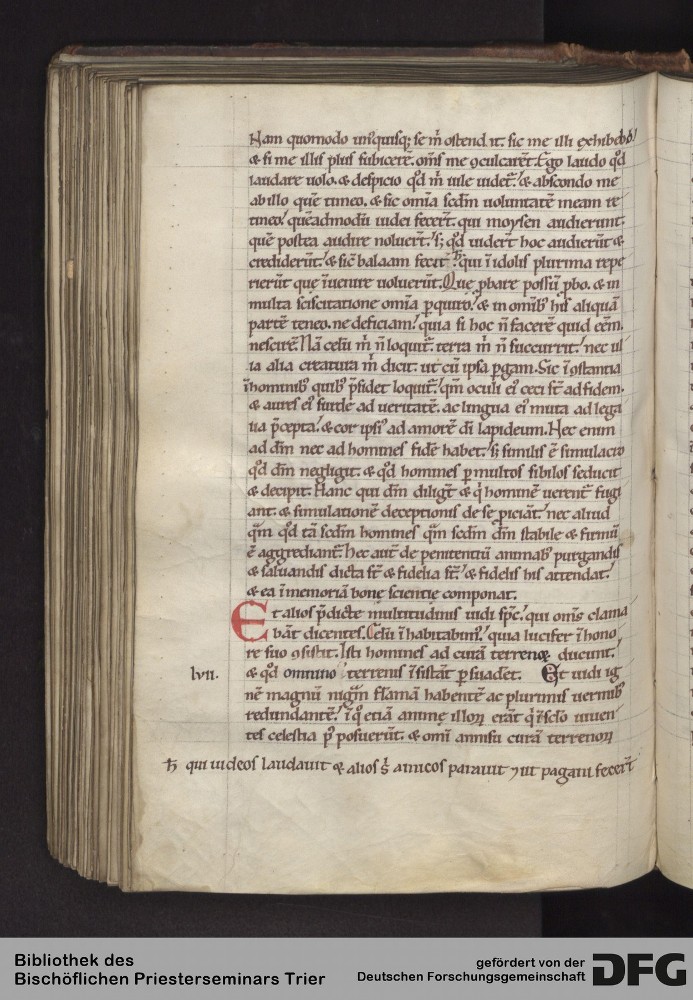 Nam quomodo unꝰquisq; se m̄ ostend̄it. sic me illi exhibebo.
& si me illis plus subicerē. om̄s me ꝯculcarēt. Ego laudo qd̄
laudare uolo. & despicio qd̄ m̄ uile uidet̄. & abscondo me
ab illo quē timeo. & sic om̄ia scdm̄ uoluntatē meam re
tineo. quēadmodū iudei fecer̄t. qui moysen audierunt.
quē postea audire noluer̄t. s; qd̄ uider̄t hoc audierūt &
crediderūt. & sic balaam fecit. qui ī idolis plurima repe
rierūt que īuenire uoluerūt. Que ꝓbare possū ꝓbo. & in
multa sciscitatione om̄ia ꝑquiro. & in omībꝰ his aliquā
partē teneo. ne deficiam. quia si hoc n̄ facerē quid eēm.
nescirē. Nā celū m̄ n̄ loquit̄. terra m̄ n̄ succurrit. nec ul
la alia creatura m̄ dicit. ut cū ipsa ꝑgam. Sic īꝯstantia
ī hominibꝰ quibꝰ p̄sidet loquit̄. qm̄ oculi eiꝰ ceci st̄ ad fidem.
& aures eiꝰ surde ad ueritatē. ac lingua eiꝰ muta ad lega
lia p̄cepta. & cor ipsiꝰ ad amorē dī lapideum. Hec enim
ad dm̄ nec ad homines fidē habet. s; similis ē simulacro
qd̄ dm̄ negligit. & qd̄ homines ꝑ multos sibilos seducit
& decipit. Hanc qui dm̄ diligt̄ & q̇ hominē uerent̄ fugi
ant. & simulationē deceptionis de se ꝓiciāt. nec aliud
qm̄ qd̄ tā scdm̄ homines qm̄ scdm̄ dm̄ stabile & firmū
ē aggrediant̄. Hec aut̄ de penitentiū animabꝰ purgandis
& saluandis dicta st̄ & fidelia st̄. & fidelis his attendat.
& ea ī memoriā bone scientie componat.
Et alios p̄dicte multitudinis uidi sp̄c. qui om̄s clama
bāt dicentes. Celū ī habitabimꝰ. quia lucifer ī hono
re suo ꝯsistit. Isti homines ad curā terrenoꝝ ducunt.
lvii. & qd̄ omnino terrenis īsistāt ꝑsuadet. Et uidi ig
nē magnū nigrū flāmā habentē ac plurimis uermibꝰ
redundantē. ī q̊ etiā anime illoꝝ erāt q̇ ī sc̄lo uiuen
tes celestia pꝰ posuerūt. & omi annisu curā terrenoꝝ
qui iudeos laudauit & alios s amicos parauit ut pagani fecer̄t
Bibliothek des
Bischöflichen Priesterseminars Trier
gefördert von der
Deutschen Forschungsgemeinschaft DFG